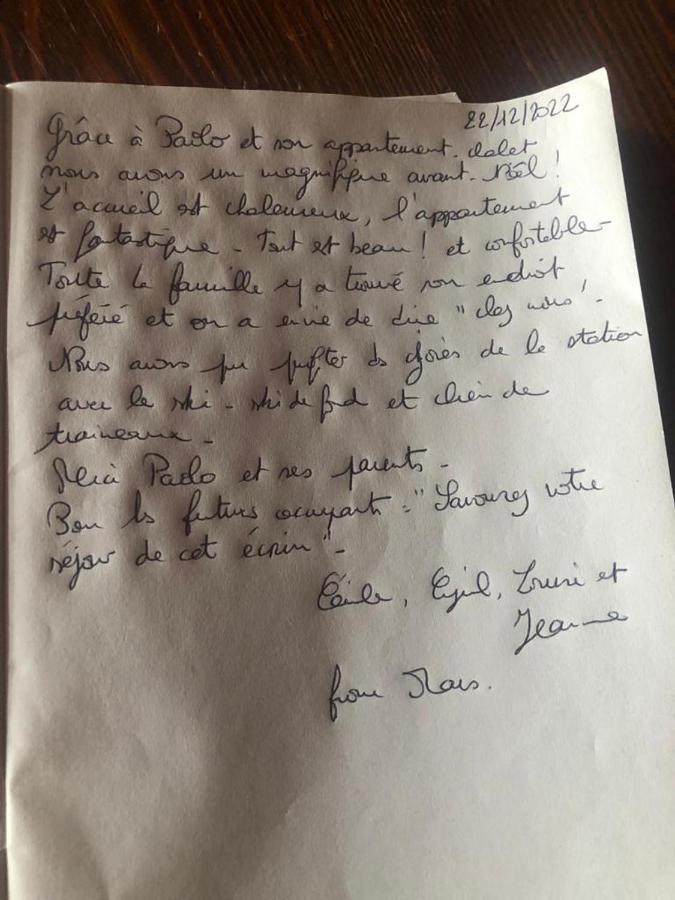 22/12/2022
Grâce à Paolo et son appartement-chalet
nous avons un magnifique avant-Noël !
L'accueil est chaleureux, l'appartement
est fantastique - Tout est beau ! et confortable -
Toute la famille y a trouvé son endroit
préféré et on a envie de dire "chez nous" -
Nous avons pu profiter des joies de la station
avec le ski - ski de fond et chien de
traineaux -
Merci Paolo et ses parents -
Bon les futurs occupants : "Savourez votre
séjour de cet écrin" -
Cécile, Cyril, et
Jeanne
from Mars.